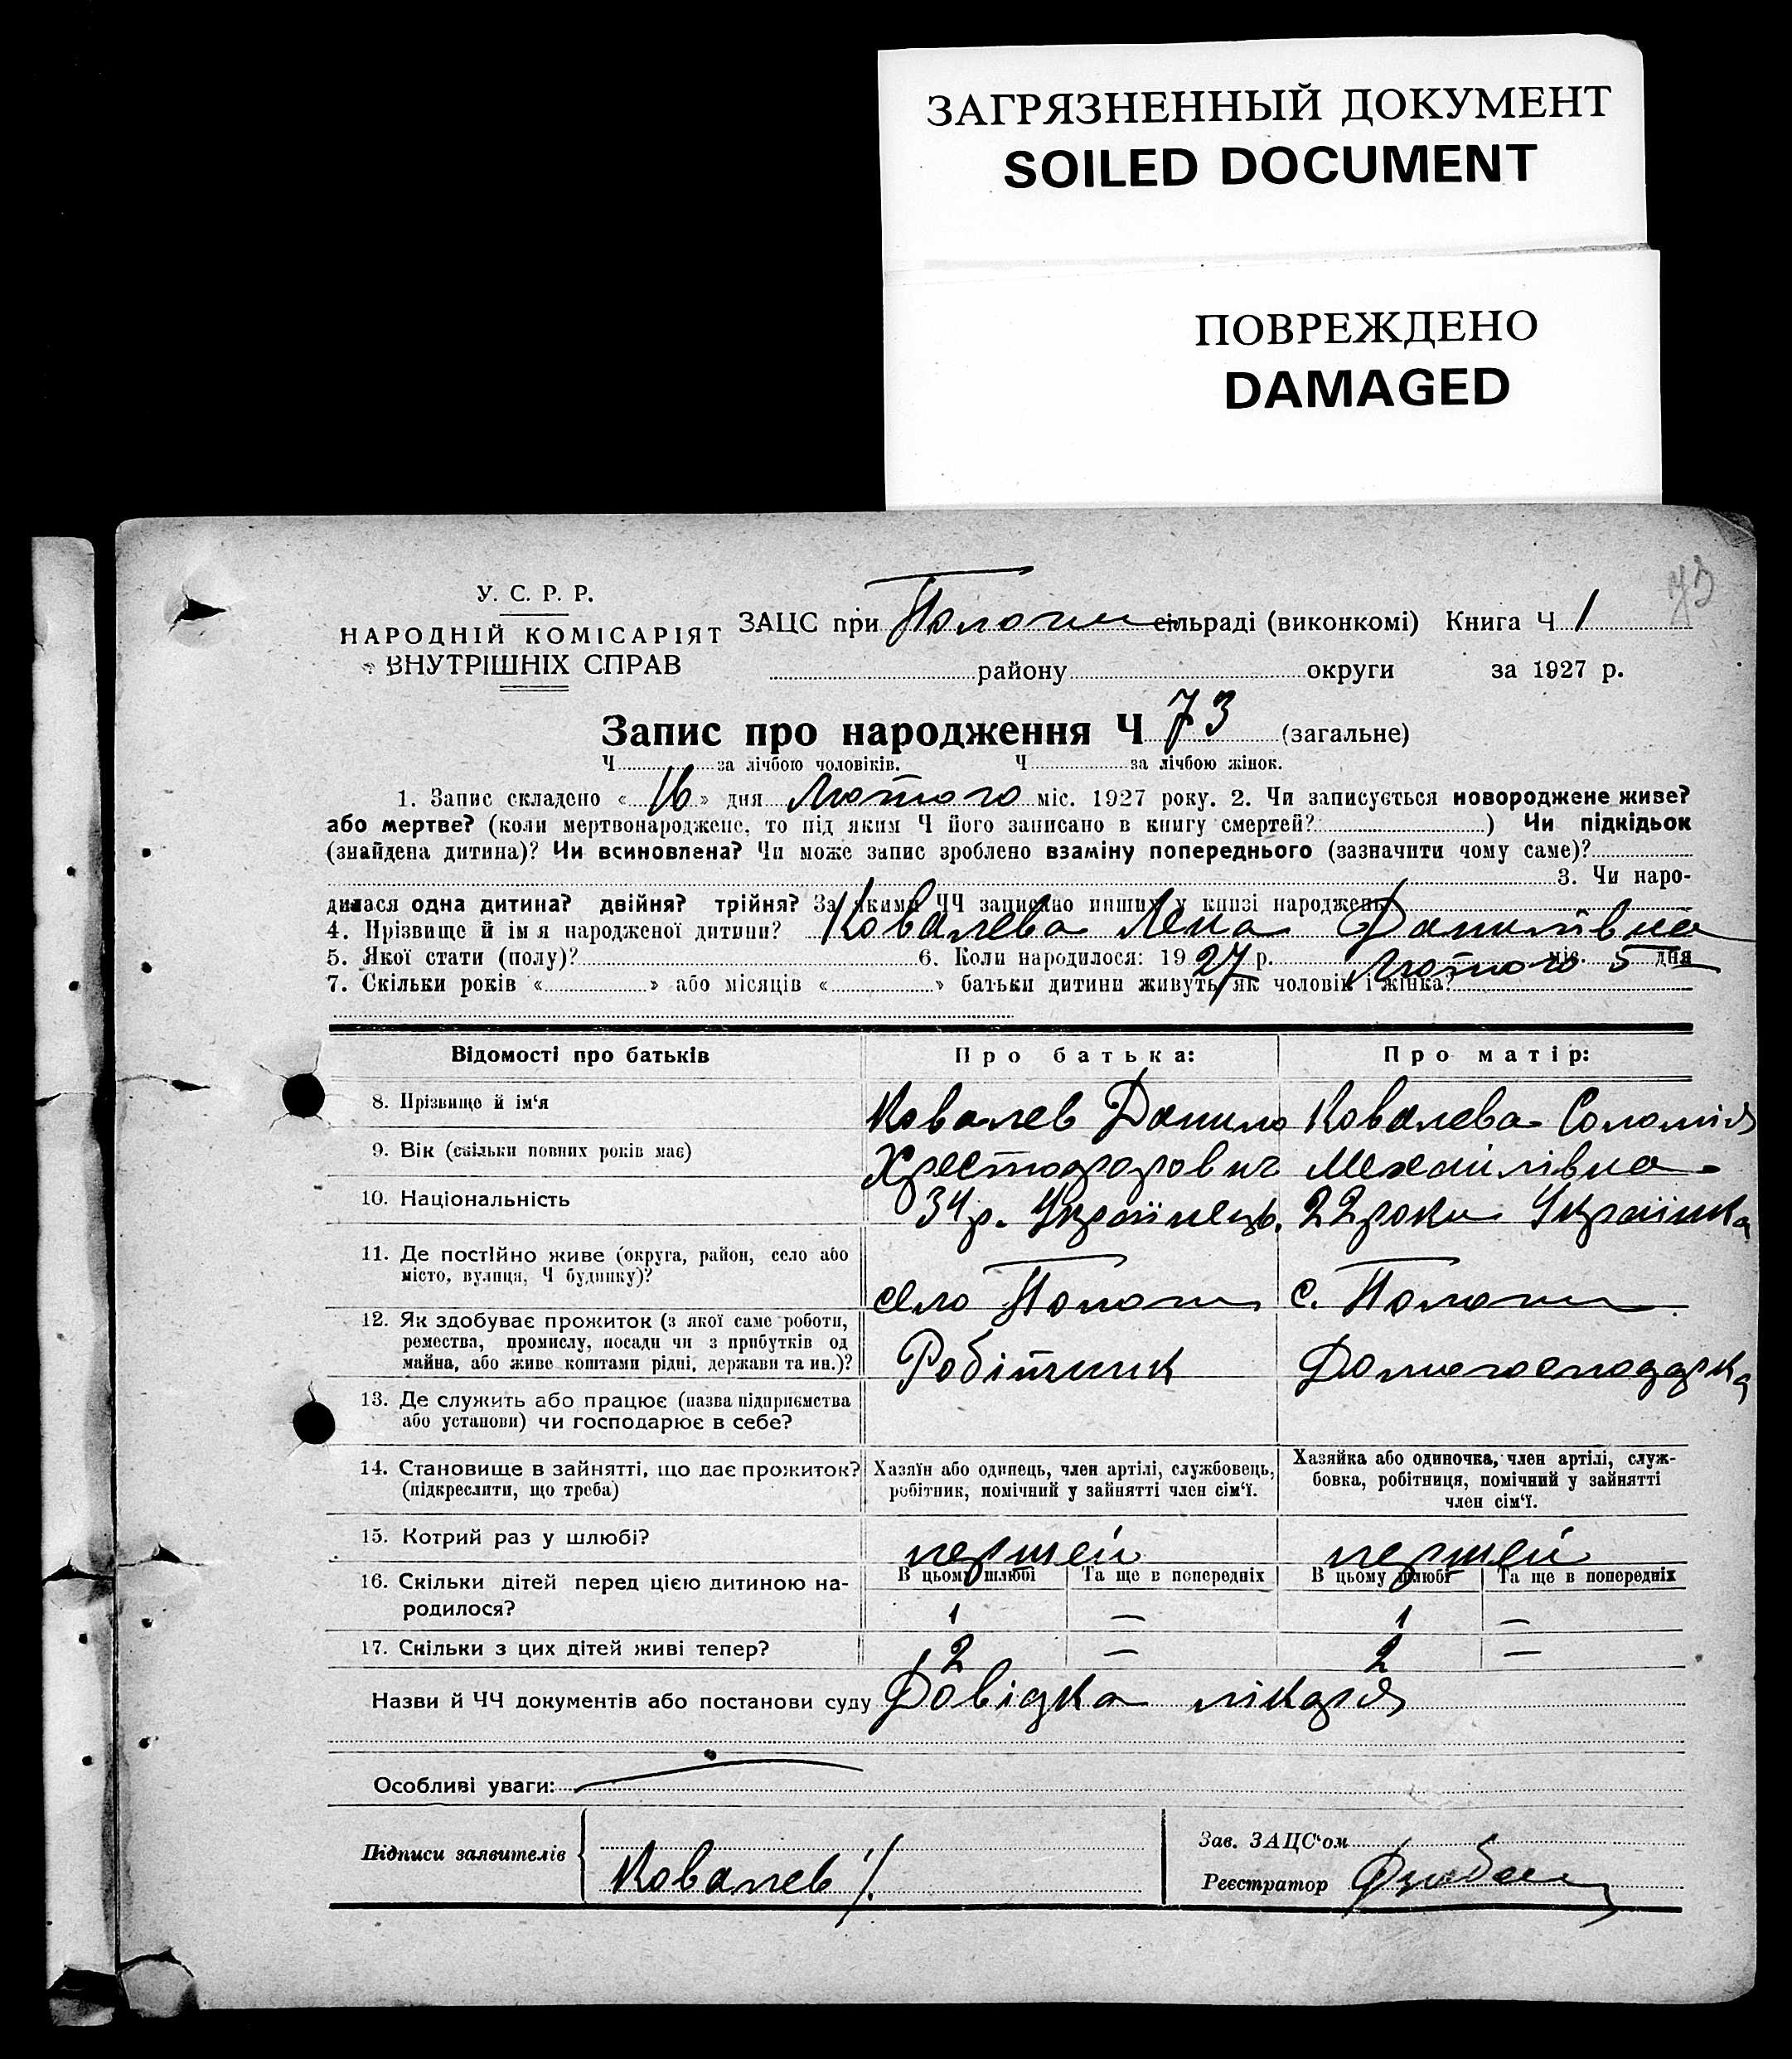 ЗАГРЯЗНЕННЫЙ ДОКУМЕНТ
SOILED DOCUMENT
ПОВРЕЖДЕНО
DAMAGED
73
У. С. Р. Р.
НАРОДНІЙ КОМІСАРІЯТ
ВНУТРІШНІХ СПРАВ
ЗАЦС при Пологи сільраді (виконкомі) Книга Ч 1
району округи за 1927 р.
Запис про народження Ч 73 (загальне)
Ч за лічбою чоловіків. Ч за лічбою жінок.
1. Запис складено « 16 » дня Лютого міс. 1927 року. 2. Чи записується новороджене живе?
або мертве? (коли мертвонароджене, то під яким Ч його записано в книгу смертей? ) Чи підкідьок
(знайдена дитина)? Чи всиновлена? Чи може запис зроблено взаміну попереднього (зазначити чому саме)?
3. Чи наро-
дилася одна дитина? двійня? трійня? За якими ЧЧ записано инших у книзі народжень
4. Прізвище й ім я народженої дитини? Ковалева Лена Данилівна
5. Якої стати (полу)? 6. Коли народилося: 19 27 р. Лютого міс. 5 дня
7. Скільки років « » або місяців « » батьки дитини живуть як чоловік і жінка?
Відомості про батьків Про батька: Про матір:
8. Прізвище й ім‘я Ковалев Данило Ковалева Соломія
9. Вік (скільки повних років має) Хрестофорович Мехайлівна
10. Національність 34 р. Українець. 22 роки Українка
11. Де постійно живе (округа, район, село або
місто, вулиця, Ч будинку)? село Пологи с. Пологи
12. Як здобуває прожиток (з якої саме роботи,
ремества, промислу, посади чи з прибутків од
майна, або живе коштами рідні, держави та ин.)? Робітник Домогосподарка
13. Де служить або працює (назва підприємства
або установи) чи господарює в себе?
14. Становище в зайнятті, що дає прожиток?
(підкреслити, що треба)
Хазяїн або одинець, член артілі, службовець,
робітник, помічний у зайнятті член сім‘ї.
Хазяйка або одиночка, член артілі, служ-
бовка, робітниця, помічний у зайнятті
член сім‘ї.
15. Котрий раз у шлюбі? першей першей
16. Скільки дітей перед цією дитиною на-
родилося?
В цьому шлюбі Та ще в попередніх В цьому шлюбі Та ще в попередніх
1 — 1 —
17. Скільки з цих дітей живі тепер? 2 — 2 —
Назви й ЧЧ документів або постанови суду Довідка лікаря
Особливі уваги:
Підписи заявителів Ковалев
Зав. ЗАЦС‘ом
Реєстратор